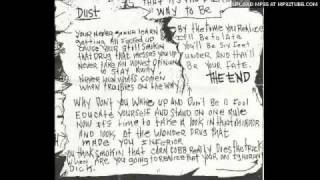 THAT'S THE
WAY TO BE
DUST
YOUR NEVER GONNA LEARN
GETTING ALL FUCKED UP
CAUSE YOUR STILL SMOKIN
THAT DRUG THAT MESSES YOU UP
NEVER TAKE AN HONEST OPINION
TO STAY AWAY
NEVER KNOW WHATS COMEN
WHEN TROUBLES ON THE WAY
BY THE TIME YOU REALIZE
IT'LL BE TO LATE
YOU'LL BE SIX FEET
UNDER AND THAT'LL
BE YOUR FATE.
THE END
WHY DON'T YOU WAKE UP AND DON'T BE A FOOL
EDUCATE YOURSELF AND STAND ON ONE RULE
NOW IT'S TIME TO TAKE A LOOK IN THAT MIRROR
AND LOOK AT THE WONDER DRUG THAT
MADE YOU INFERIOR
YOU THINK SMOKIN THAT CORN COBB REALLY DOES THE TRICK
WHEN ARE YOU GOING TO REALIZE THAT YOUR AN IGNORANT
DICK.
UPLOAD MP3S AT MP32TUBE.COM